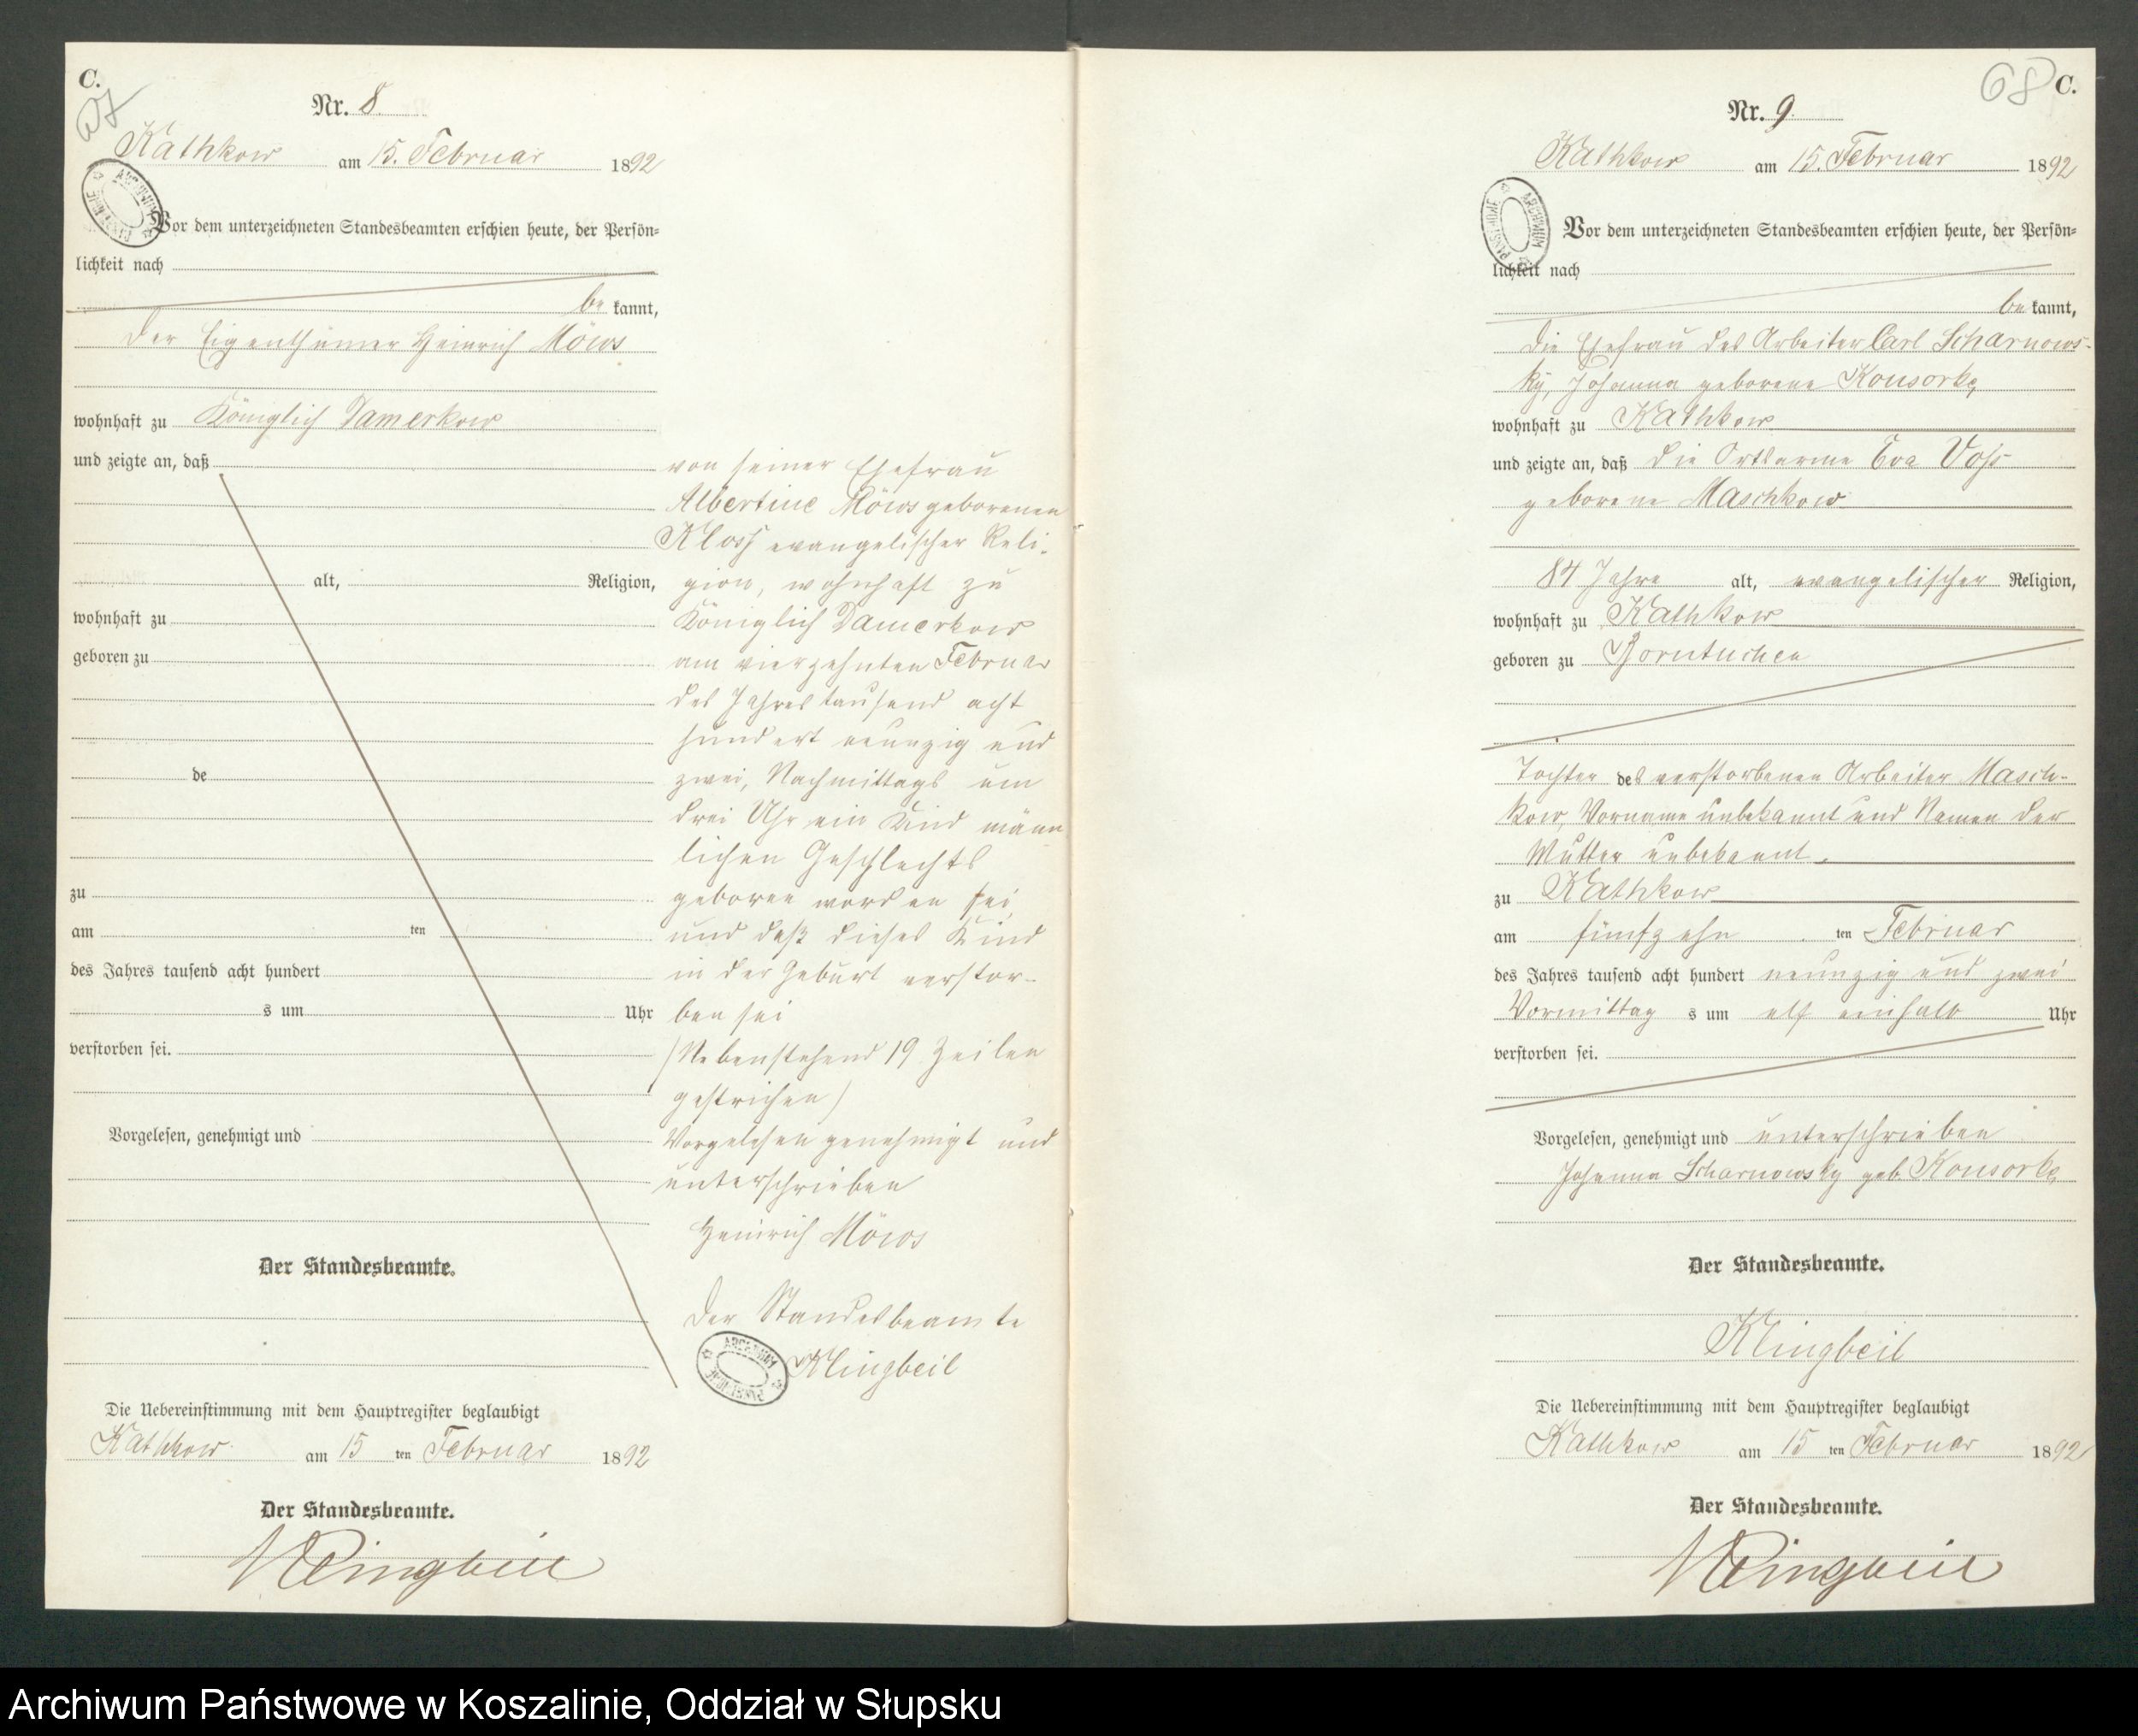 C.
67
Nr. 8.
Kathkow am 15. Februar 1892
Vor dem unterzeichneten Standesbeamten erschien heute, der Persön-
lichkeit nach
be kannt,
der Eigenthümer Heinrich Möws
wohnhaft zu Königlich Damerkow
und zeigte an, daß
alt, Religion,
wohnhaft zu
geboren zu
de
zu
am ten
des Jahres tausend acht hundert
s um Uhr
verstorben sei.
Vorgelesen, genehmigt und
Der Standesbeamte.
von seiner Ehefrau
Albertine Möws geborenen
Kloss evangelischer Reli-
gion, wohnhaft zu
Königlich Damerkow
am vierzehnten Februar
des Jahres tausend acht
hundert neunzig und
zwei, Nachmittags um
drei Uhr ein Kind männ
lichen Geschlechts
geboren worden sei
und daß dieses Kind
in der Geburt verstor-
ben sei
(Nebenstehend 19 Zeilen
gestrichen)
Vorgelesen genehmigt und
unterschrieben
Heinrich Möws
Der Standesbeamte
Klingbeil
Die Uebereinstimmung mit dem Hauptregister beglaubigt
Kathkow am 15 ten Februar 1892
Der Standesbeamte.
Klingbeil
68 C.
Nr. 9.
Kathkow am 15. Februar 1892
Vor dem unterzeichneten Standesbeamten erschien heute, der Persön-
lichkeit nach
be kannt,
die Ehefrau des Arbeiter Carl Scharnows-
ky, Johanna geborene Konsorke
wohnhaft zu Kathkow
und zeigte an, daß die Ortsarme Eva Voss
geborene Maschkow
84 Jahre alt, evangelischer Religion,
wohnhaft zu Kathkow
geboren zu Borntuchen
Tochter des verstorbenen Arbeiter Masch-
kow, Vorname unbekannt und Namen der
Mutter unbekannt.
zu Kathkow
am fünfzehn ten Februar
des Jahres tausend acht hundert neunzig und zwei
Vormittag s um elf einhalb Uhr
verstorben sei.
Vorgelesen, genehmigt und unterschrieben
Johanna Scharnowsky geb. Konsorke
Der Standesbeamte.
Klingbeil
Die Uebereinstimmung mit dem Hauptregister beglaubigt
Kathkow am 15 ten Februar 1892
Der Standesbeamte.
Klingbeil
Archiwum Państwowe w Koszalinie, Oddział w Słupsku